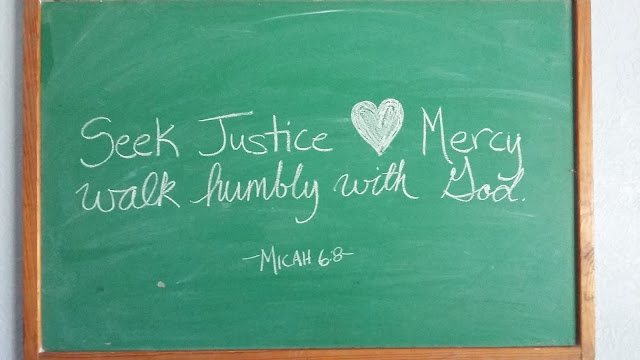 Seek Justice ♥ Mercy
walk humbly with God.
-MICAH 6:8-